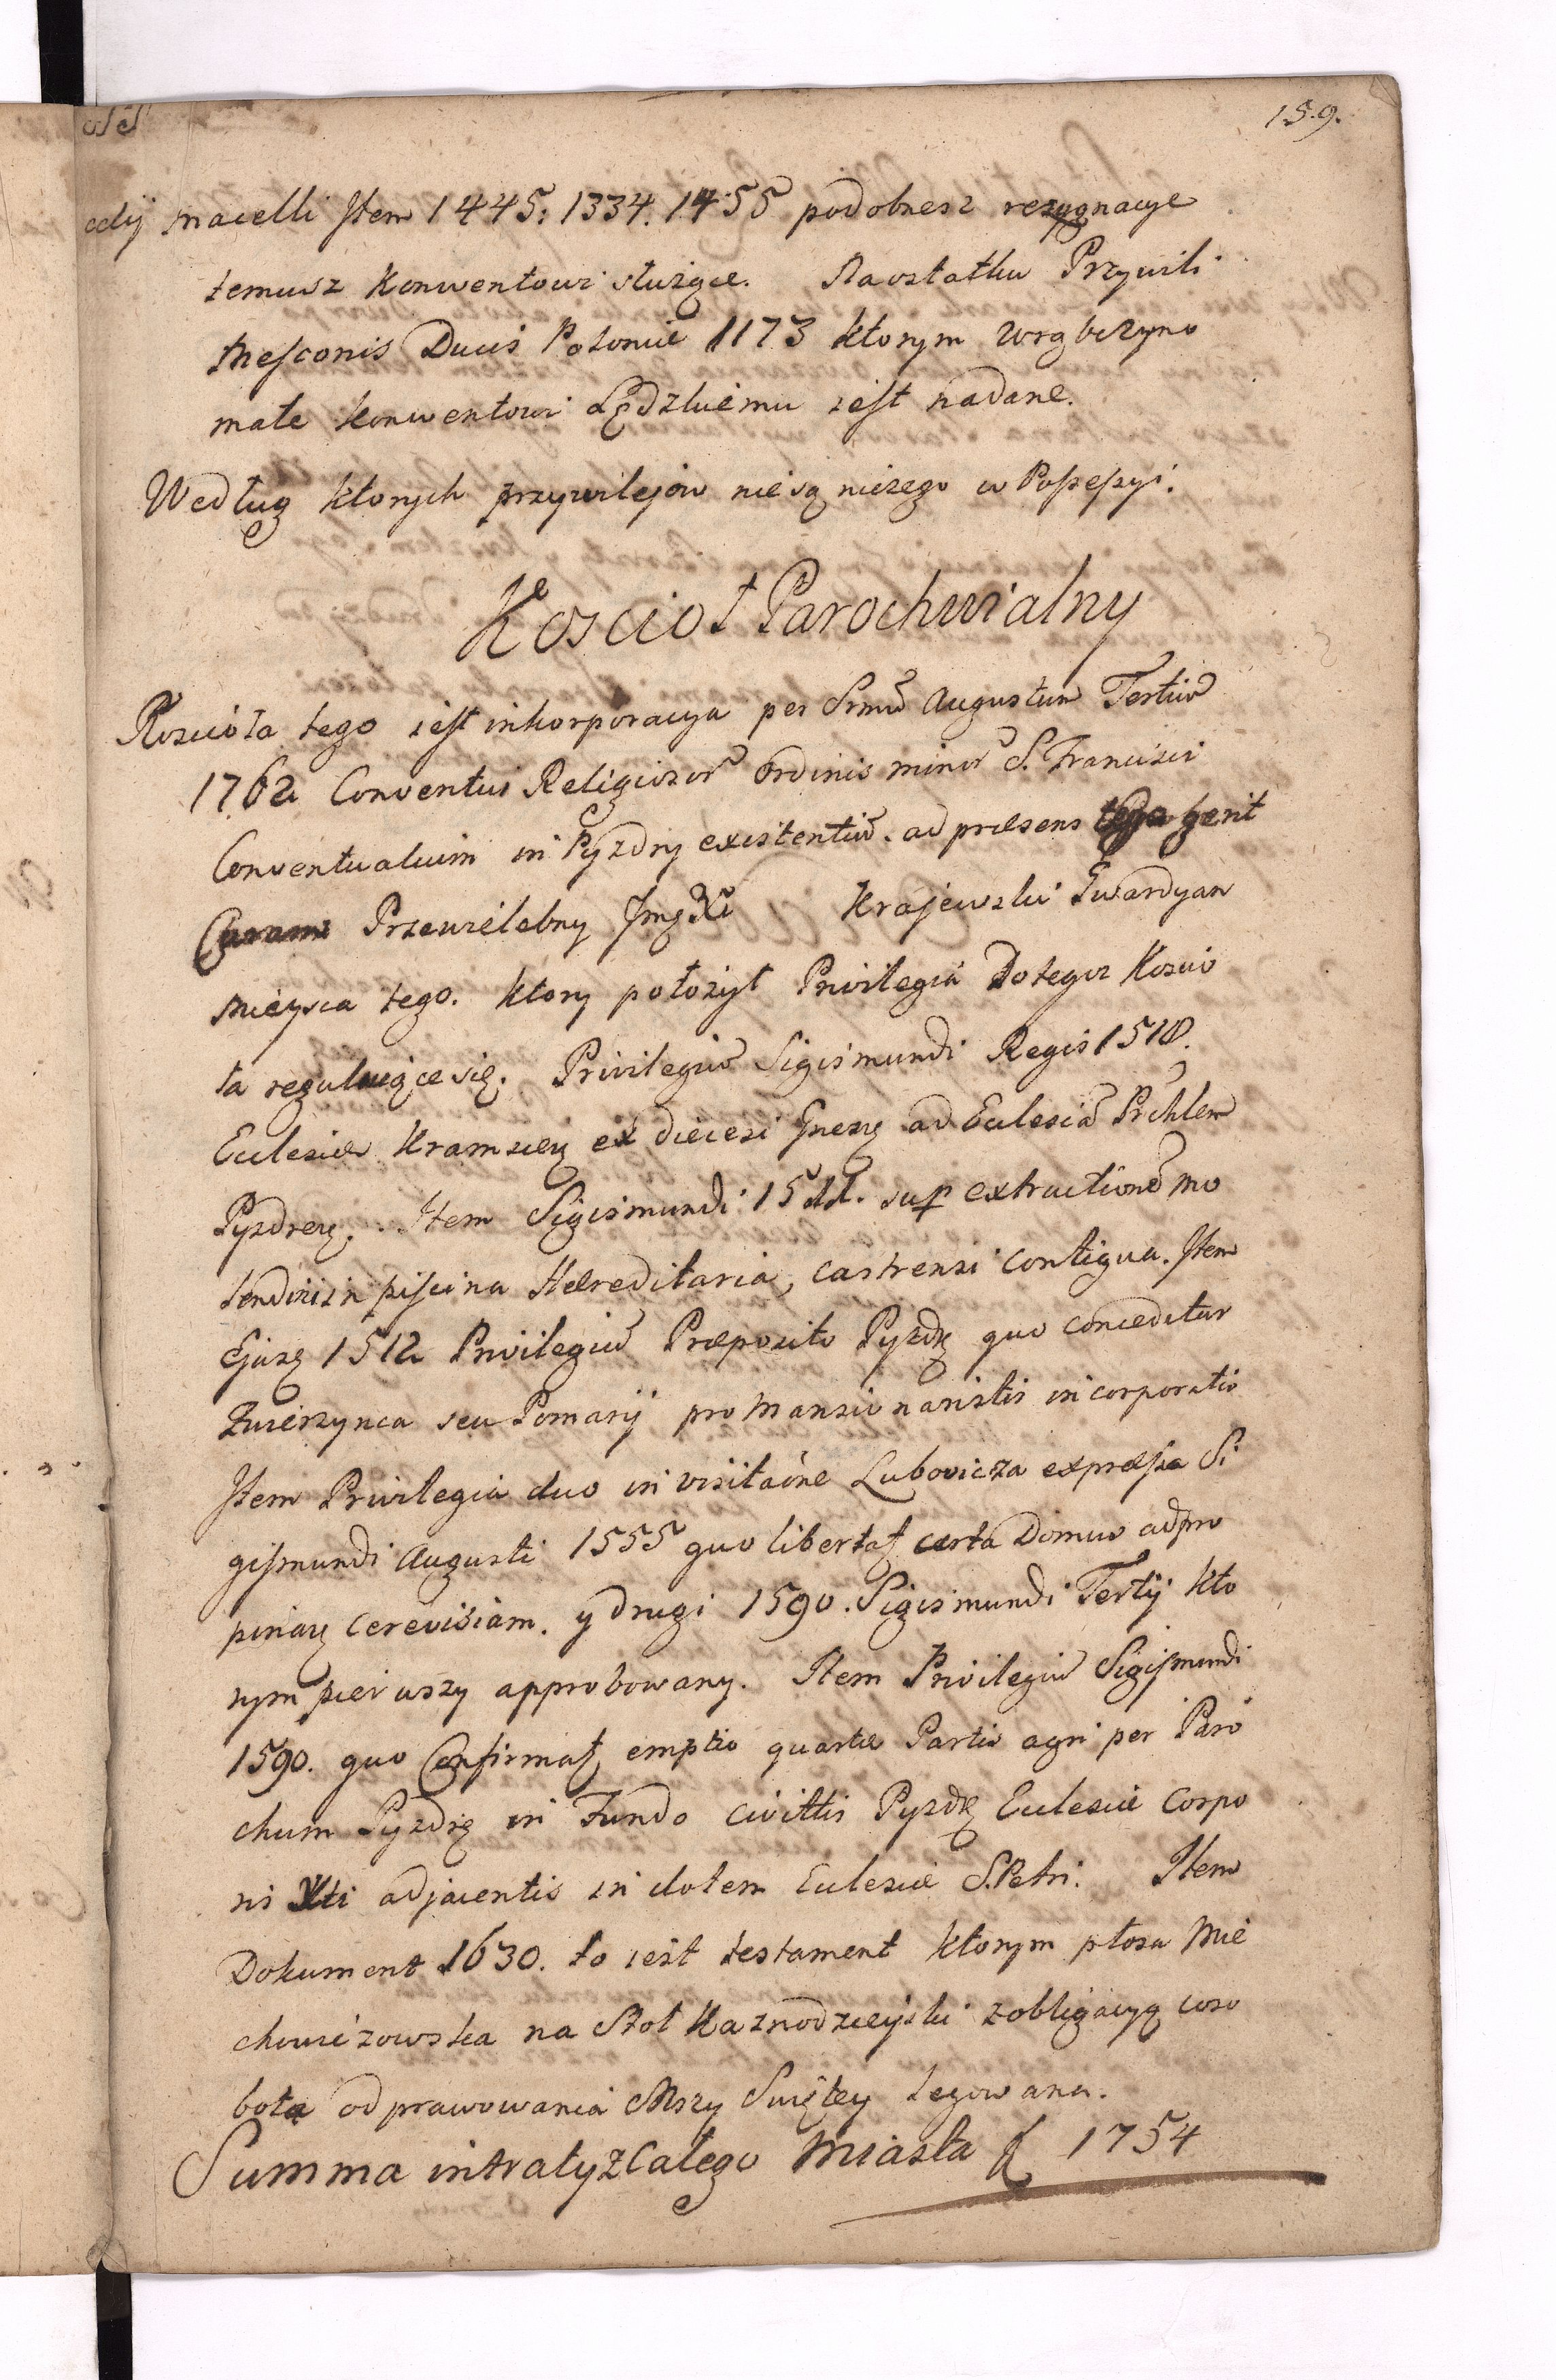 159.
macelli Item 1445. 1334. 1455 podobnesz rezygnacye
temusz Konwentowi służące. Naostatku Przywili
Mesconis Ducis Polonie 1173 ktorym Wrąbczyno
małe Konwentowi Lędzkiemu iest nadane.
Według ktorych przywilejow nie są niczego w Possessyi.
Koscioł Parochwialny
Kosciola tego iest inkorporacya per Srmu Augustum Tertiu
1762 Conventui Religiosor Ordinis minor S. Francisci
Conventualium in Pyzdry existentiu. ad præsens gerit
Curam Przewielebny Jmg Xi Krajewski Gwardyan
mieysca tego. ktory położył Privilegia Do tegoz Koscio
ła regulujące się. Privilegiu Sigismundi Regis 1518.
Eclesiæ Kramscen ex diecesi Gnesn ad Eclesia Prchlem
Pyzdren. Item Sigismundi 1511. sup extructione mo
lendini in piscina Hæreditaria, castrensi contigua. Item
Ejusq 1512 Privilegiu Præposito Pyzdr quo conceditur
Zwierzynca seu Pomarij pro mansionaristis incorporatio
Item Privilegia duo in visitaóne Lubovicza expressa Si
gismundi Augusti 1555 quo libertat certa Domus ad pro
pinan cerevisiam. y drugi 1590. Sigismundi Tertij kto
rym pierwszy approbowany. Item Privilegiu Sigismundi
1590. quo Confirmat emptio quartæ Partis agri per Paro
chum Pyzdren in Fundo civittis Pyzdr Eclesiæ Corpo
ris Xti adjacentis in dotem Eclesiæ S. Petri. Item
Dokument 1630. to iest testament ktorym płosa Mie
chowiczowska na Stoł Kaznodzieyski z obligacyą coso
bota odprawowania Mszy Swiętey legowana.
Summa intraty z Całego Miasta f 1754